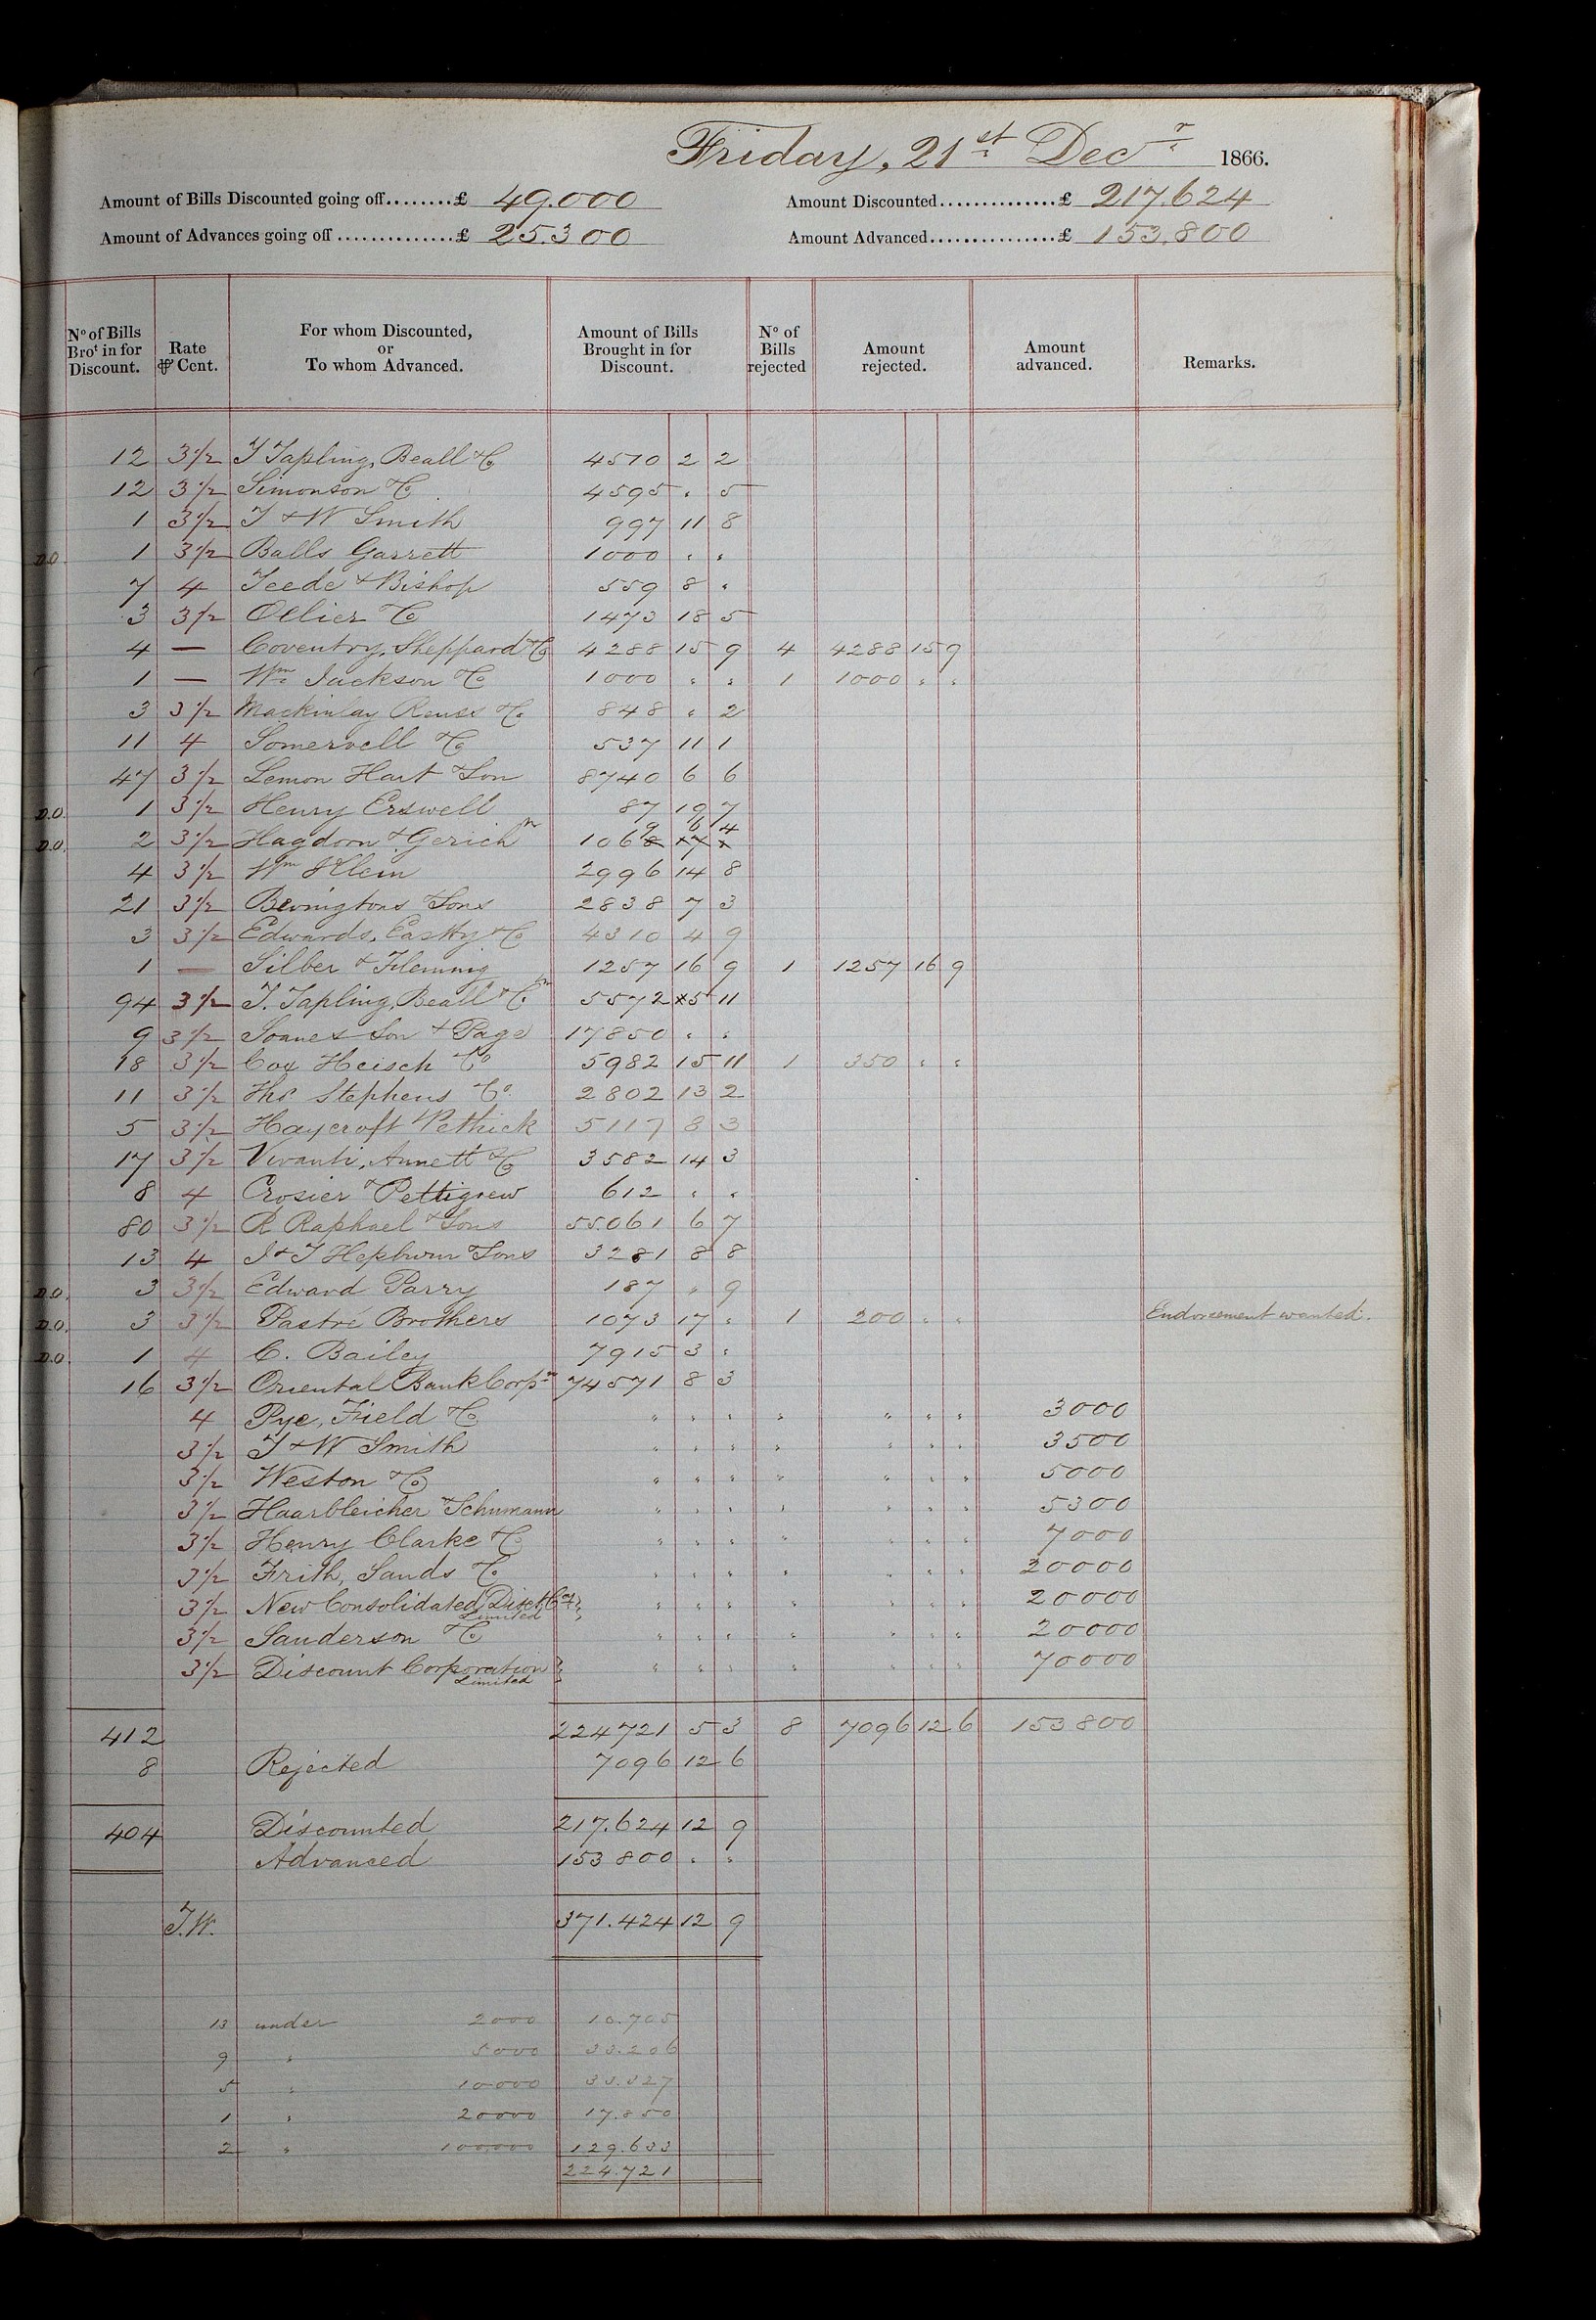 Friday, 21st Decr 1866.
Amount of Bills Discounted going off........£ 49.000 Amount Discounted..............£ 217.624
Amount of Advances going off..............£ 25.300 Amount Advanced................£ 153.800
No of Bills Brot in for Discount. Rate ⅌ Cent. For whom Discounted, or To whom Advanced. Amount of Bills Brought in for Discount. No of Bills rejected Amount rejected. Amount advanced. Remarks.
12 3½ T Tapling, Beall & Co 4510 2 2
12 3½ Simonson & Co 4595 " 5
1 3½ T & W Smith 997 11 8
D.O. 1 3½ Balls Garrett 1000 " "
7 4 Teede & Bishop 559 8 "
3 3½ Ollier & Co 1473 18 5
4 — Coventry, Sheppard & Co 4288 15 9 4 4288 15 9
1 — Wm Jackson & Co 1000 " " 1 1000 " "
3 3½ Mackinlay Reuss & Co 848 " 2
11 4 Somervell & Co 537 11 1
47 3½ Lemon Hart & Son 8740 6 6
D.O. 1 3½ Henry Erswell 87 19 7
D.O. 2 3½ Hagdorn & Gerich 1069 6 4
4 3½ Wm Klein 2996 14 8
21 3½ Bevingtons & Sons 2838 7 3
3 3½ Edwards, Eastty & Co 4310 4 9
1 — Silber & Fleming 1257 16 9 1 1257 16 9
94 3½ T. Tapling, Beall & Co 5572 5 11
9 3½ Soanes Son & Page 17850 " "
18 3½ Cox Heisch & Co 5982 15 11 1 350 " "
11 3½ Thos Stephens & Co 2802 13 2
5 3½ Haycroft & Pethick 5117 8 3
17 3½ Vivanti, Annett & Co 3582 14 3
8 4 Crosier & Pettigrew 612 " "
80 3½ R Raphael & Sons 55.061 6 7
13 4 J & T Hepburn & Sons 3281 8 8
D.O. 3 3½ Edward Parry 187 " 9
D.O. 3 3½ Pastré Brothers 1073 17 " 1 200 " " Endorsement wanted.
D.O. 1 4 C. Bailey 7915 3 "
16 3½ Oriental Bank Corpn 74571 8 3
4 Pye, Field & Co " " " " " " " 3000
3½ T & W Smith " " " " " " " 3500
3½ Weston & Co " " " " " " " 5000
3½ Haarbleicher & Schumann " " " " " " " 5300
3½ Henry Clarke & Co " " " " " " " 7000
3½ Frith, Sands & Co " " " " " " " 20000
3½ New Consolidated Disct Co Limited " " " " " " " 20000
3½ Sanderson & Co " " " " " " " 20000
3½ Discount Corporation Limited " " " " " " " 70000
412 224721 5 3 8 7096 12 6 153800
8 Rejected 7096 12 6
404 Discounted 217.624 12 9
Advanced 153800 " "
T.W. 371.424 12 9
13 under 2000 10.705
9 " 5000 33.206
5 " 10000 33.327
1 " 20000 17.850
2 " 100,000 129.633
224.721